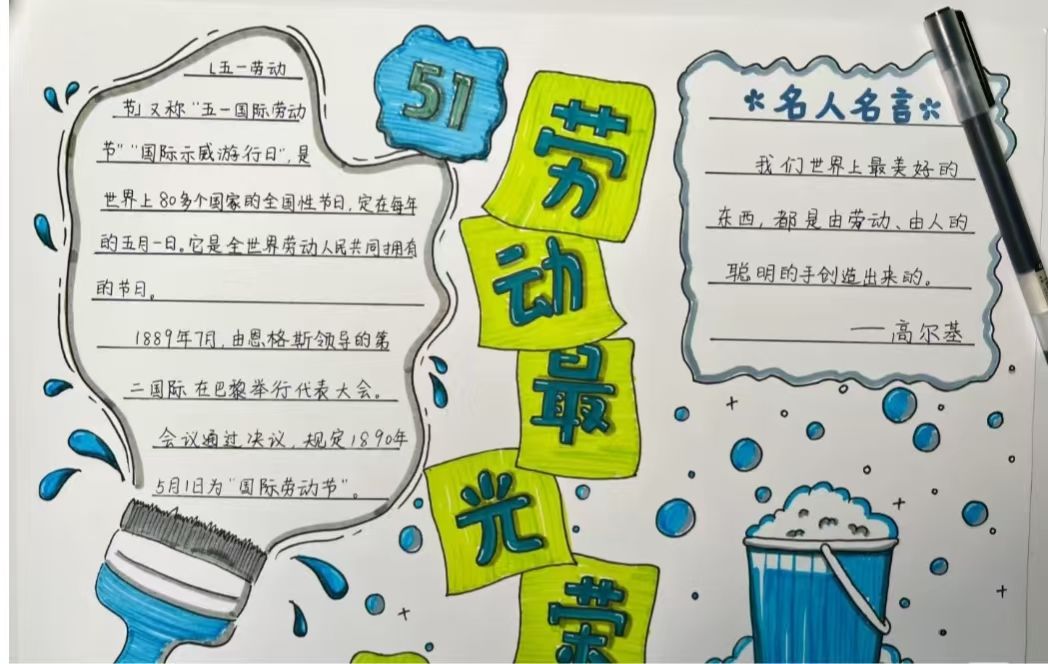 51
劳
动
最
光
荣
（五一劳动
节）又称“五一国际劳动
节”“国际示威游行日”，是
世界上80多个国家的全国性节日，定在每年
的五月一日。它是全世界劳动人民共同拥有
的节日。
1889年7月，由恩格斯领导的第
二国际在巴黎举行代表大会。
会议通过决议，规定1890年
5月1日为“国际劳动节”。
*名人名言*
我们世界上最美好的
东西，都是由劳动、由人的
聪明的手创造出来的。
——高尔基